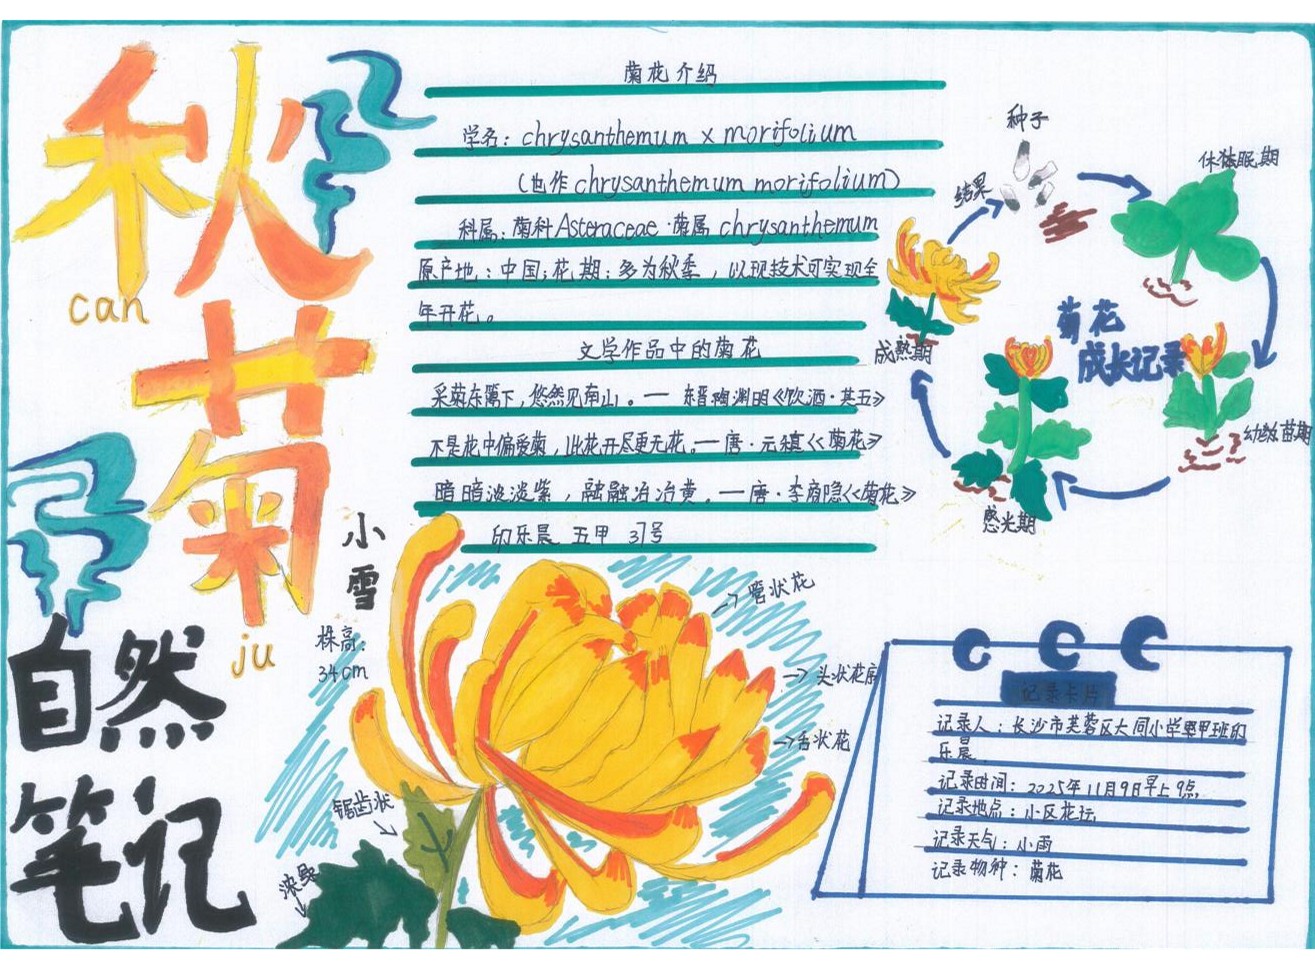 秋
can
菊
ju
小雪
自然
笔记
菊花介绍
学名：chrysanthemum x morifolium
(也作chrysanthemum morifolium)
科属：菊科Asteraceae·菊属 chrysanthemum
原产地：中国；花期：多为秋季，以现技术可实现全
年开花。
文学作品中的菊花
采菊东篱下，悠然见南山。— 东晋陶渊明《饮酒·其五》
不是花中偏爱菊，此花开尽更无花。—唐·元稹《菊花》
暗暗淡淡紫，融融冶冶黄。—唐·李商隐《菊花》
印乐晨 五甲 31号
种子
休眠期
幼苗期
感光期
成熟期
结果
菊花
成长记录
株高：
34cm
管状花
头状花扇
舌状花
锯齿状
记录卡片
记录人：长沙市芙蓉区大同小学 甲班印
乐晨
记录时间：2025年11月9日早上9点
记录地点：小区花坛
记录天气：小雨
记录物种：菊花